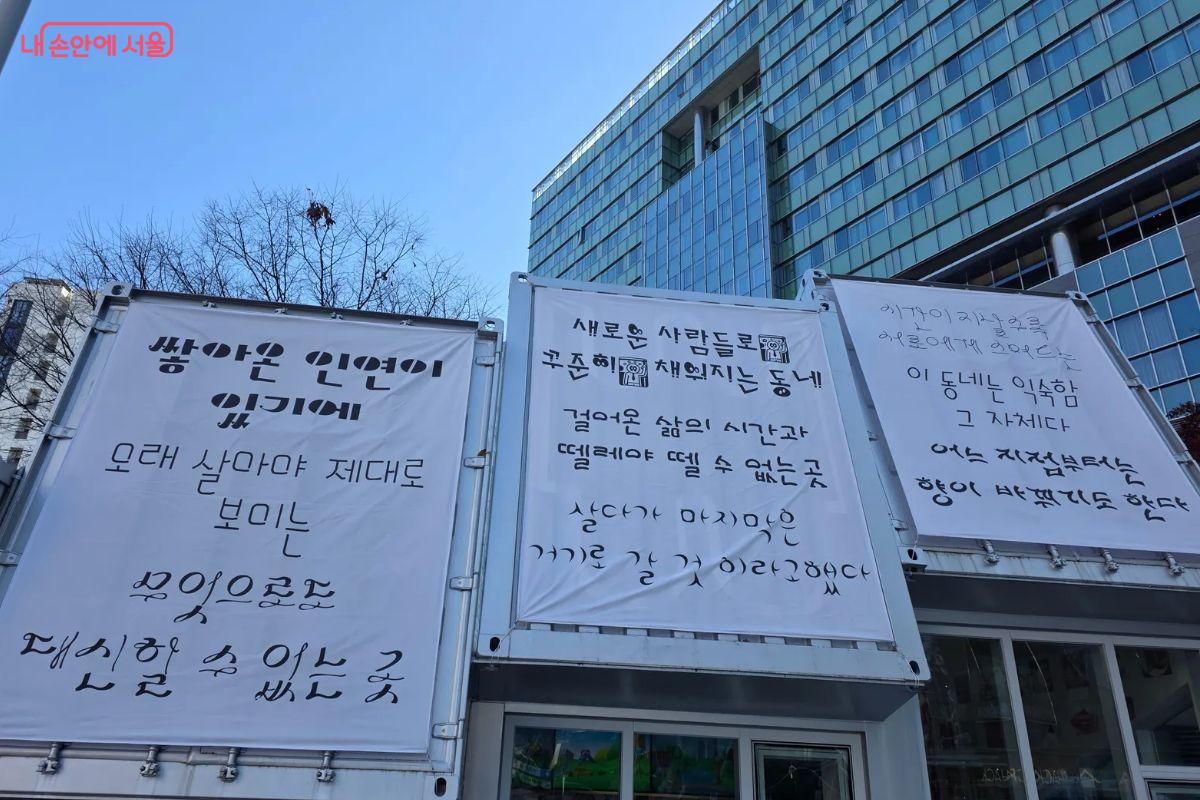 내 손안에 서울
쌓아온 인연이
있기에
오래 살아야 제대로
보이는
무엇으로도
대신할 수 없는 곳
새로운 사람들로
꾸준히 채워지는 동네
걸어온 삶의 시간과
뗄레야 뗄 수 없는 곳
살다가 마지막은
거기로 갈 것 이라고했다
시간이 지날수록
서로에게 스며드는
이 동네는 익숙함
그 자체다
어느 지점부터는
향이 바뀌기도 한다